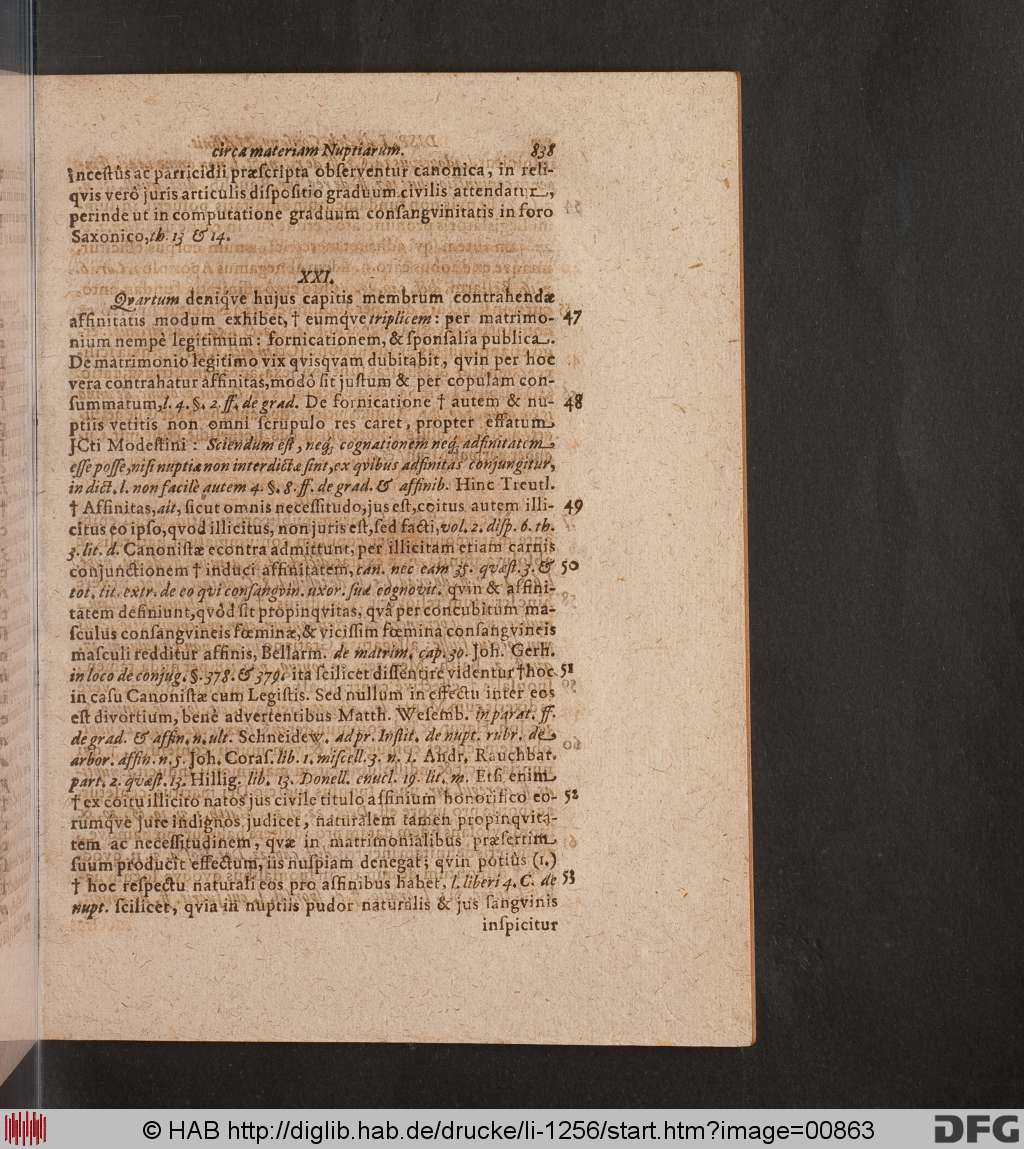 circa materiam Nuptiarum. 838
incestûs ac parricidii præscripta observentur canonica, in reli-
qvis verò juris articulis dispositio graduum civilis attendatur,
perinde ut in computatione graduum consangvinitatis in foro
Saxonico, th. 13 & 14.
XXI.
Qvartum deniqve hujus capitis membrum contrahendæ
affinitatis modum exhibet, † eumqve triplicem: per matrimo- 47
nium nempè legitimum: fornicationem, & sponsalia publica.
De matrimonio legitimo vix qvisqvam dubitabit, qvin per hoc
vera contrahatur affinitas, modò sit justum & per copulam con-
summatum, l. 4. §. 2. ff. de grad. De fornicatione † autem & nu- 48
ptiis vetitis non omni scrupulo res caret, propter effatum
JCti Modestini: Sciendum est, neq; cognationem neq; adfinitatem
esse posse, nisi nuptiæ non interdictæ sint, ex qvibus adfinitas conjungitur,
in dict. l. non facilè autem 4. §. 8. ff. de grad. & affinib. Hinc Treutl.
† Affinitas, ait, sicut omnis necessitudo, jus est, coitus autem illi- 49
citus eo ipso, qvod illicitus, non juris est, sed facti, vol. 2. disp. 6. th.
3. lit. d. Canonistæ econtra admittunt, per illicitam etiam carnis
conjunctionem † induci affinitatem, can. nec eam 35. quæst. 3. & 50
tot. tit. extr. de eo qvi consangvin. uxor. suæ cognovit. qvin & affini-
tatem definiunt, qvòd sit propinqvitas, qvâ per concubitum ma-
sculus consangvineis fœminæ, & vicissim fœmina consangvineis
masculi redditur affinis, Bellarm. de matrim. cap. 30. Joh. Gerh.
in loco de conjug. §. 378. & 379. ita scilicet dissentire videntur † hoc 51
in casu Canonistæ cum Legistis. Sed nullum in effectu inter eos
est divortium, benè advertentibus Matth. Wesemb. in parat. ff.
de grad. & affin. n. ult. Schneidew. ad pr. Instit. de nupt. rubr. de
arbor. affin. n. 5. Joh. Coras. lib. 1. miscell. 3. n. 1. Andr. Rauchbar.
part. 2. qvæst. 13. Hillig. lib. 13. Donell. enucl. 19. lit. m. Etsi enim
† ex coitu illicito natos jus civile titulo affinium honorifico eo- 52
rumqve jure indignos judicet, naturalem tamen propinqvita-
tem ac necessitudinem, qvæ in matrimonialibus præsertim
suum producit effectum, iis nuspiam denegat; qvin potiùs (1.)
† hoc respectu naturali eos pro affinibus habet, l. liberi 4. C. de 53
nupt. scilicet, qvia in nuptiis pudor naturalis & jus sangvinis
inspicitur
© HAB http://diglib.hab.de/drucke/li-1256/start.htm?image=00863
DFG